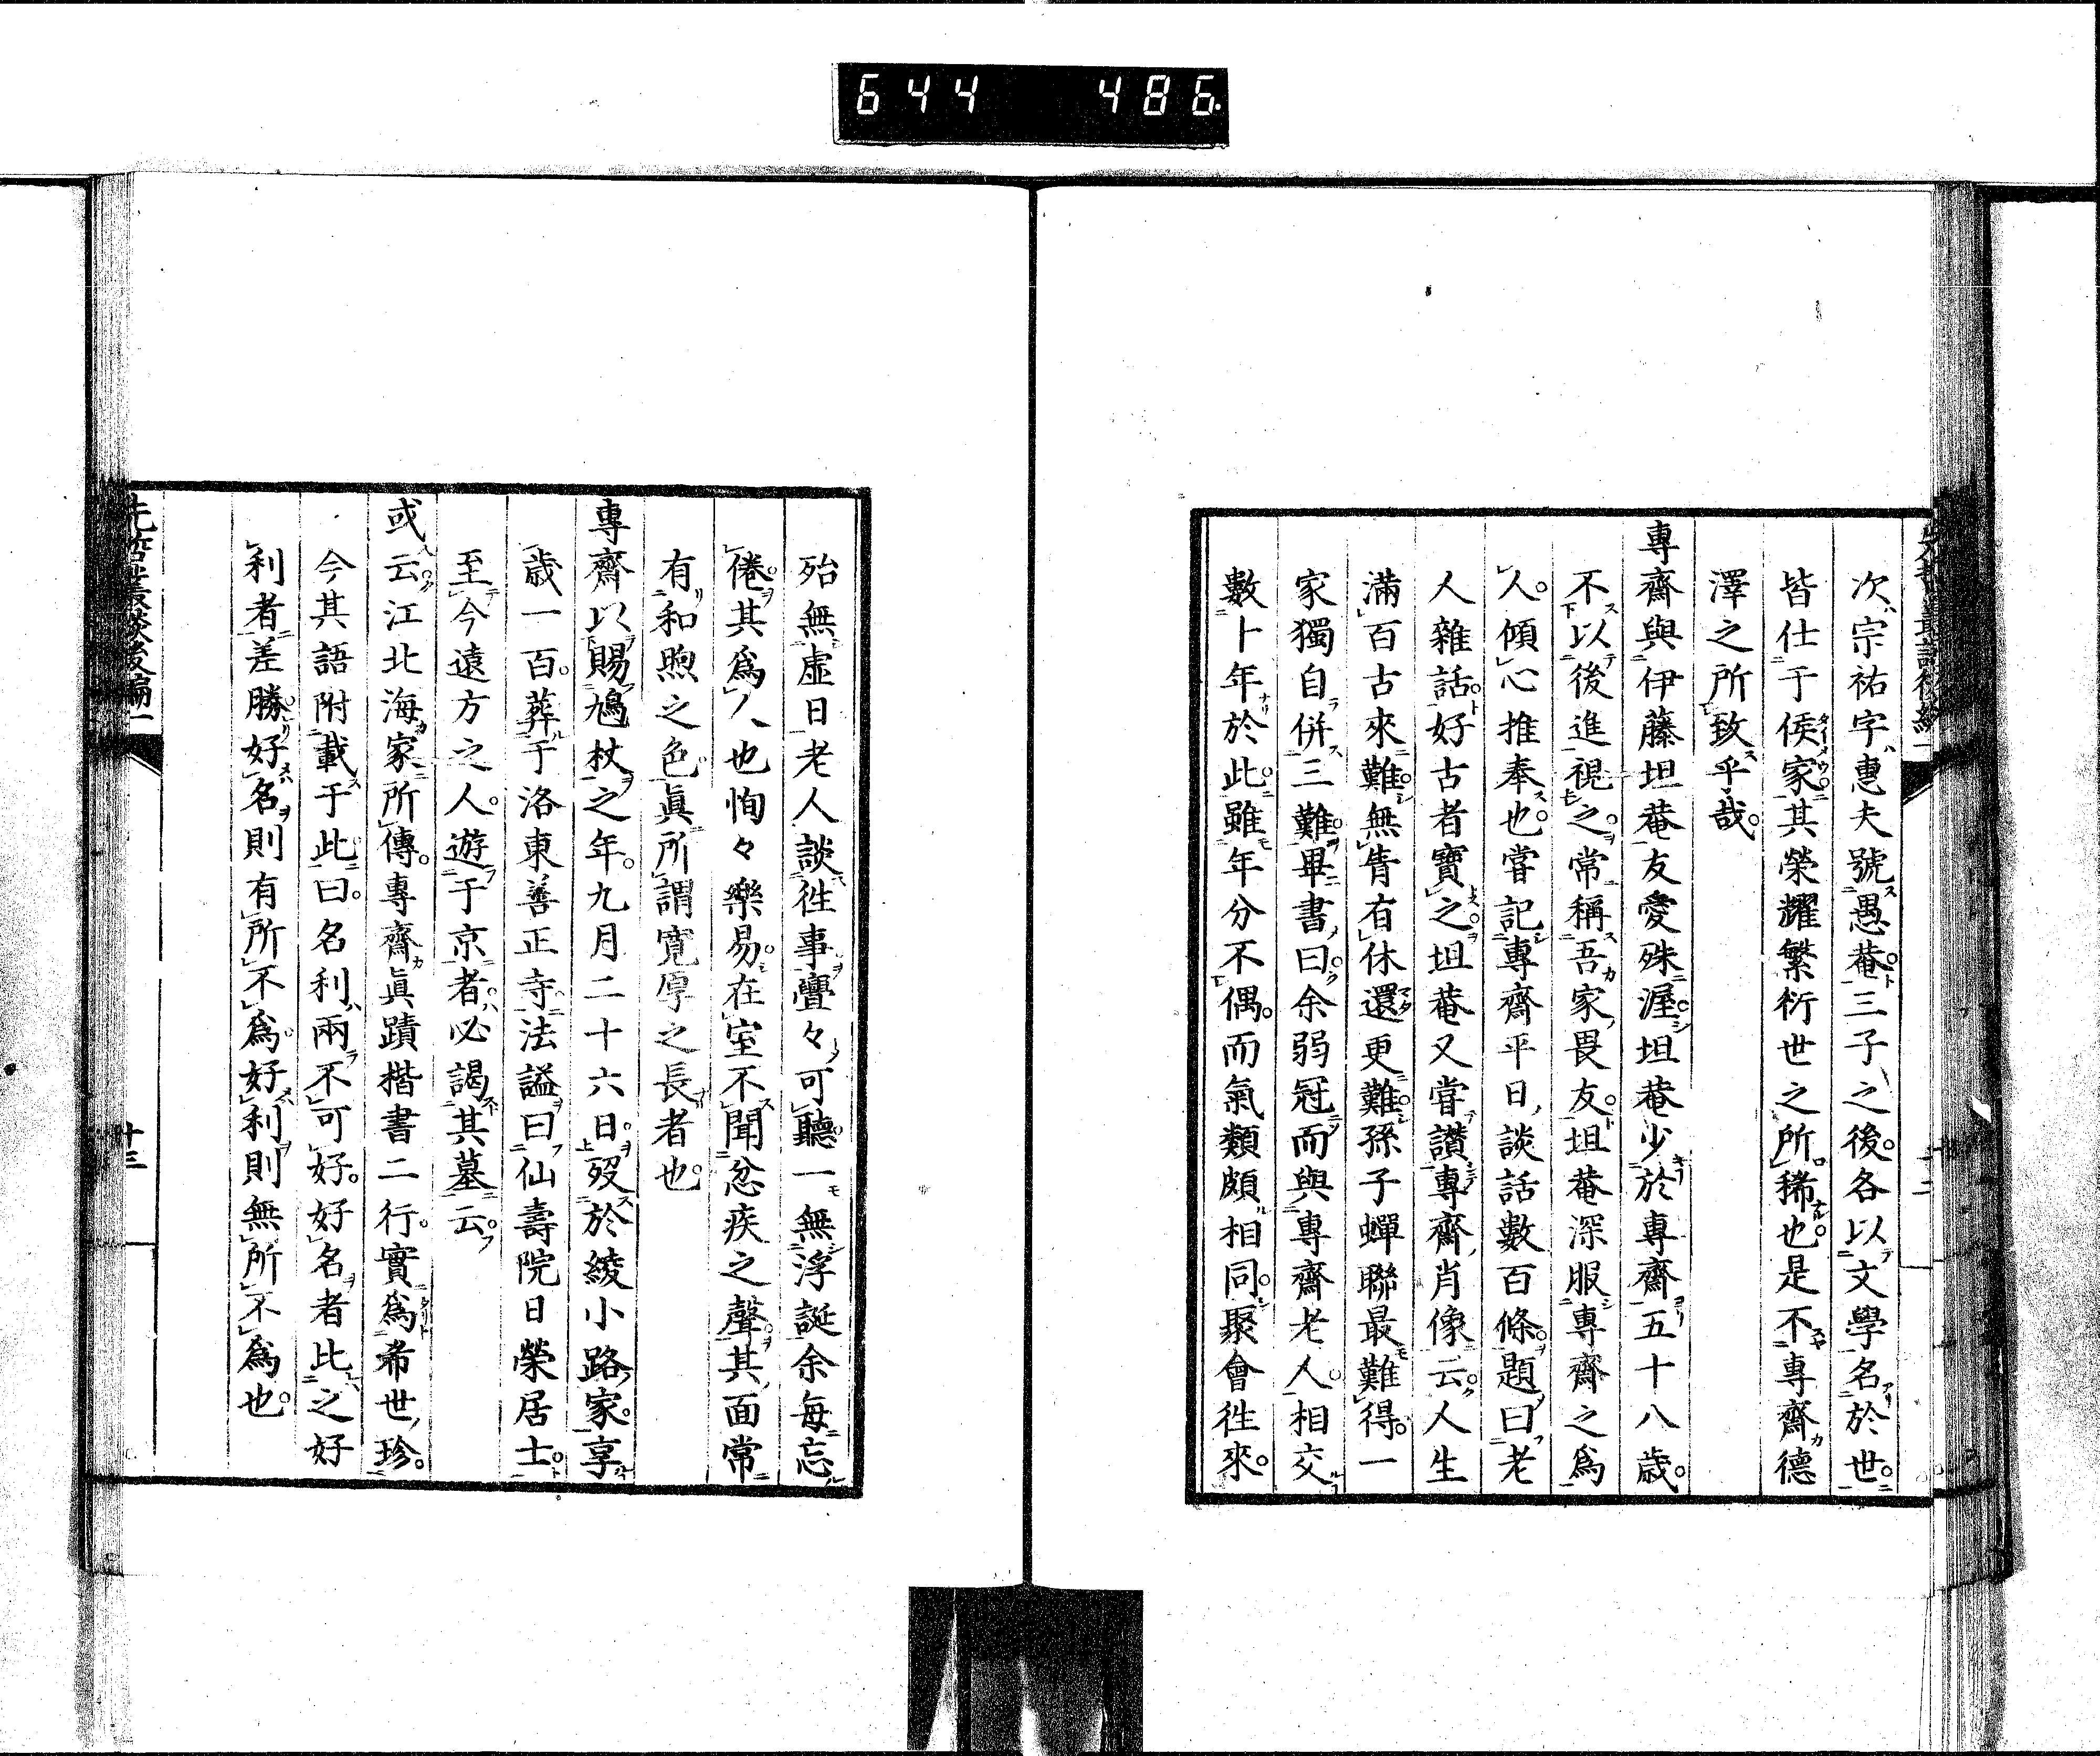 644 486
次宗祐字惠夫號愚菴三子之後各以文學名於世
皆仕于侯家其榮耀繁衍世之所稀也是不專齋德
澤之所致乎哉
專齋與伊藤坦菴友愛殊渥坦菴少於專齋五十八歳
不以後進視之常稱吾家畏友坦菴深服專齋之爲
人傾心推奉也嘗記專齋平日談話數百條題曰老
人雜話好古者寶之坦菴又嘗讃專齋肖像云人生
滿百古來難無眚有休還更難孫子蟬聯最難得一
家獨自併三難畢書曰余弱冠而與專齋老人相交
數十年於此雖年分不偶而氣類頗相同聚會徃來
殆無虛日老人談徃事亹々可聽一無浮誕余毎忘
倦其爲人也恂々樂易在室不聞忿疾之聲其面常
有和煦之色眞所謂寛厚之長者也
專齋以賜鳩杖之年九月二十六日歿於綾小路家享
歳一百葬于洛東善正寺法謚曰仙壽院日榮居士
至今遠方之人遊于京者必謁其墓云
或云江北海家所傳專齋眞蹟楷書二行實爲希世珍
今其語附載于此曰名利兩不可好好名者比之好
利者差勝好名則有所不爲好利則無所不爲也
先哲叢談後編一
十三